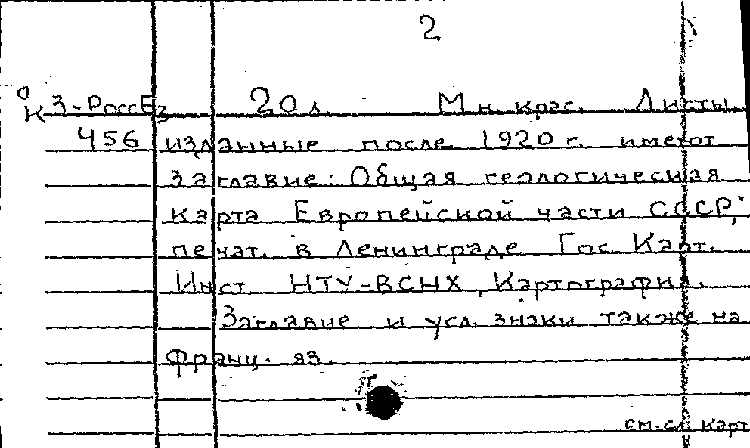 2
К 3-РоссЕз 20 л. Мн. крас. Листы,
456 изданные после 1920 г. имеют
заглавие: Общая геологическая
карта Европейской части СССР;
печат. в Ленинграде Гос. Карт.
Инст. НТУ-ВСНХ, Картография.
Заглавие и усл. знаки также на
франц. яз.
см. сл. карт